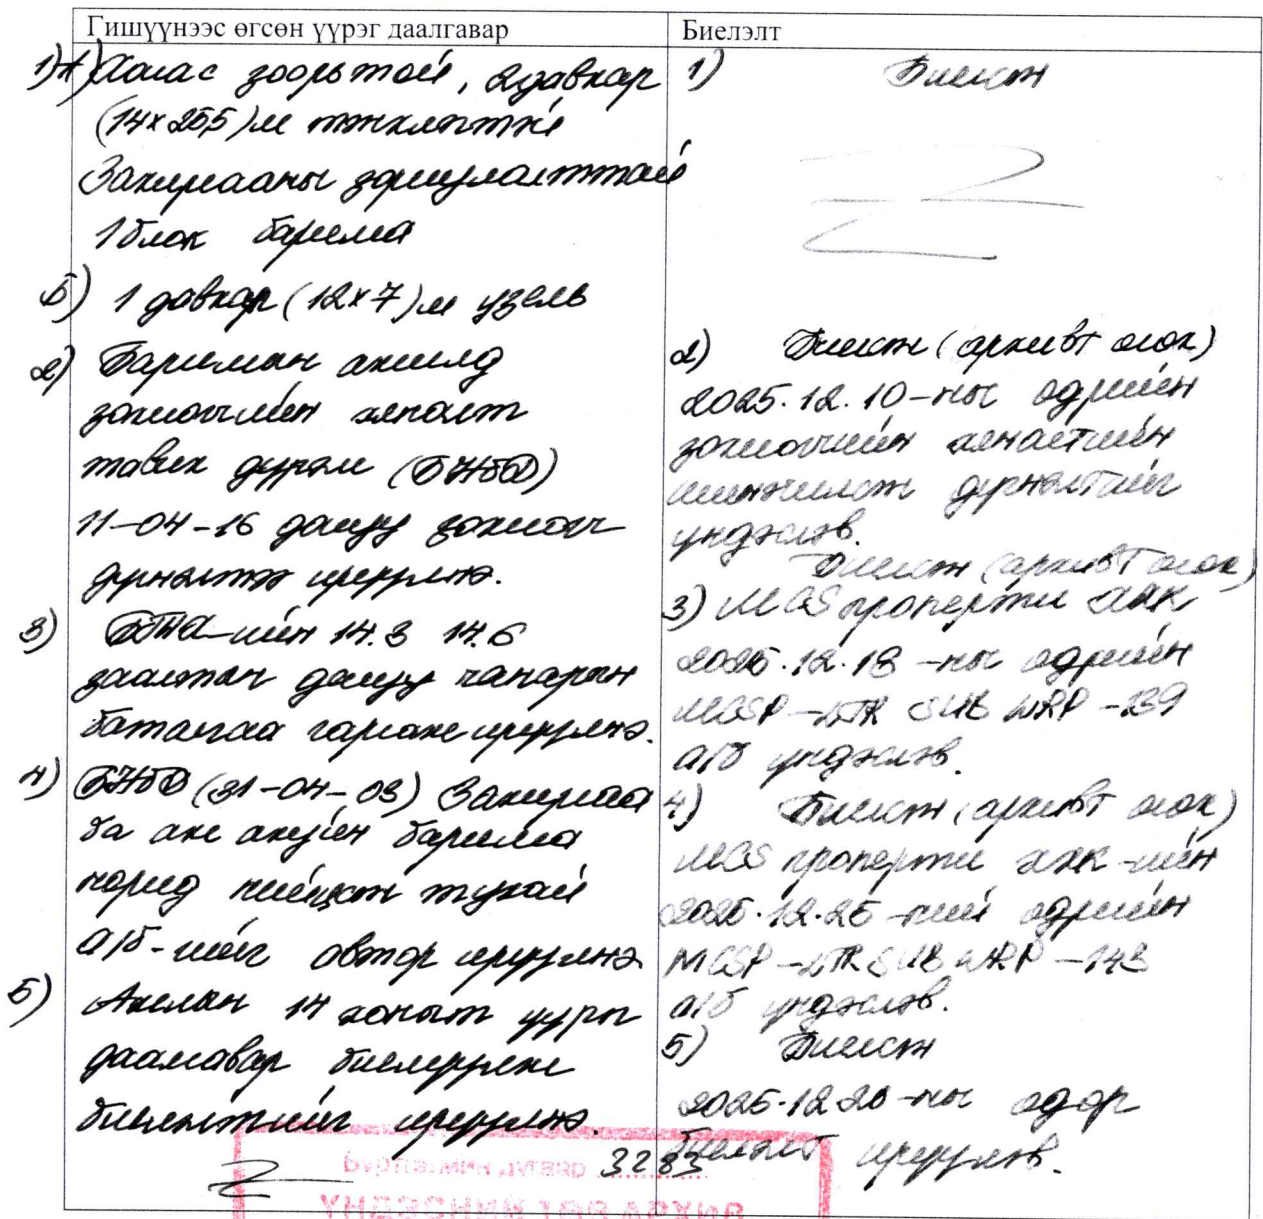 Гишүүнээс өгсөн үүрэг даалгавар
1) А) Хагас зоорьтой, 2 давхар
(14х25,5)м хэмжээтэй
Захиргааны зориулалттай
1 блок барилга
Б) 1 давхар (12х7)м узель
2) Барилгын ажилд
зохиогчийн хяналт
тавих дүрэм (БНбД)
11-04-16 дагуу зохиогч
дүгнэлтээ ирүүлнэ.
3) БТА-ийн 14.3 14.6
заалтын дагуу чанарын
баталгаа гаргаж ирүүлнэ.
4) БНбД (31-04-03) Захиргаа
ба аж ахуйн барилга
норид нийцсэн тухай
а/б-ийг автор ирүүлнэ
5) Ажлын 14 хоногт үүрэг
даалгавар биелүүлж
биелэлтийг ирүүлнэ.
Биелэлт
1) Биелсэн
2) Биелсэн (архивт өгөх)
2025.12.10-ны өдрийн
зохиогчийн хяналтийн
шинжилсэн дүгнэлтийг
үндэслэв.
Биелсэн (архивт өгөх)
3) MCS проперти ХХК
2025.12.18-ны өдрийн
MCSP-LTR SUB WRP-139
а/б үндэслэв.
4) Биелсэн (архивт өгөх)
MCS проперти ХХК-ийн
2025.12.25-ний өдрийн
MCSP-LTR SUB WRP-143
а/б үндэслэв.
5) Биелсэн
2025.12.26-ны өдөр
биелэлт ирүүлэв.
3283